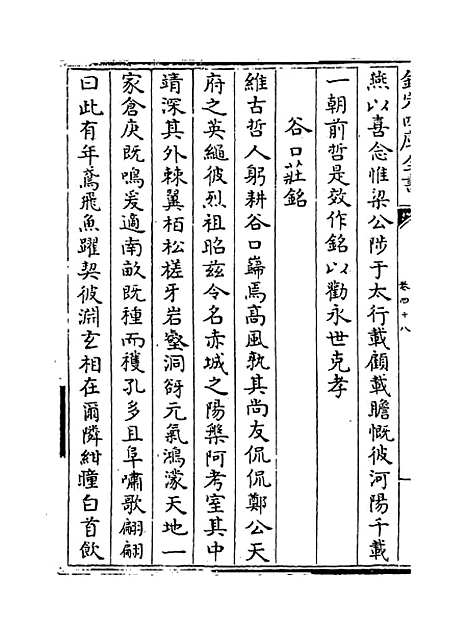 欽定四庫全書
卷四十八
燕以喜念惟梁公陟于太行載顧載瞻慨彼河陽千載
一朝前哲是效作銘以勸永世克孝
谷口莊銘
維古哲人躬耕谷口巋焉高風孰其尚友侃侃鄭公天
府之英繩彼烈祖昭兹令名赤城之陽槃阿考室其中
靖深其外棘翼栢松槎牙岩壑洞谺元氣鴻濛天地一
家倉庚既鳴爰適南畝既種而穫孔多且阜嘯歌翩翩
曰此有年鳶飛魚躍契彼淵玄相在爾隣紺瞳白首飲